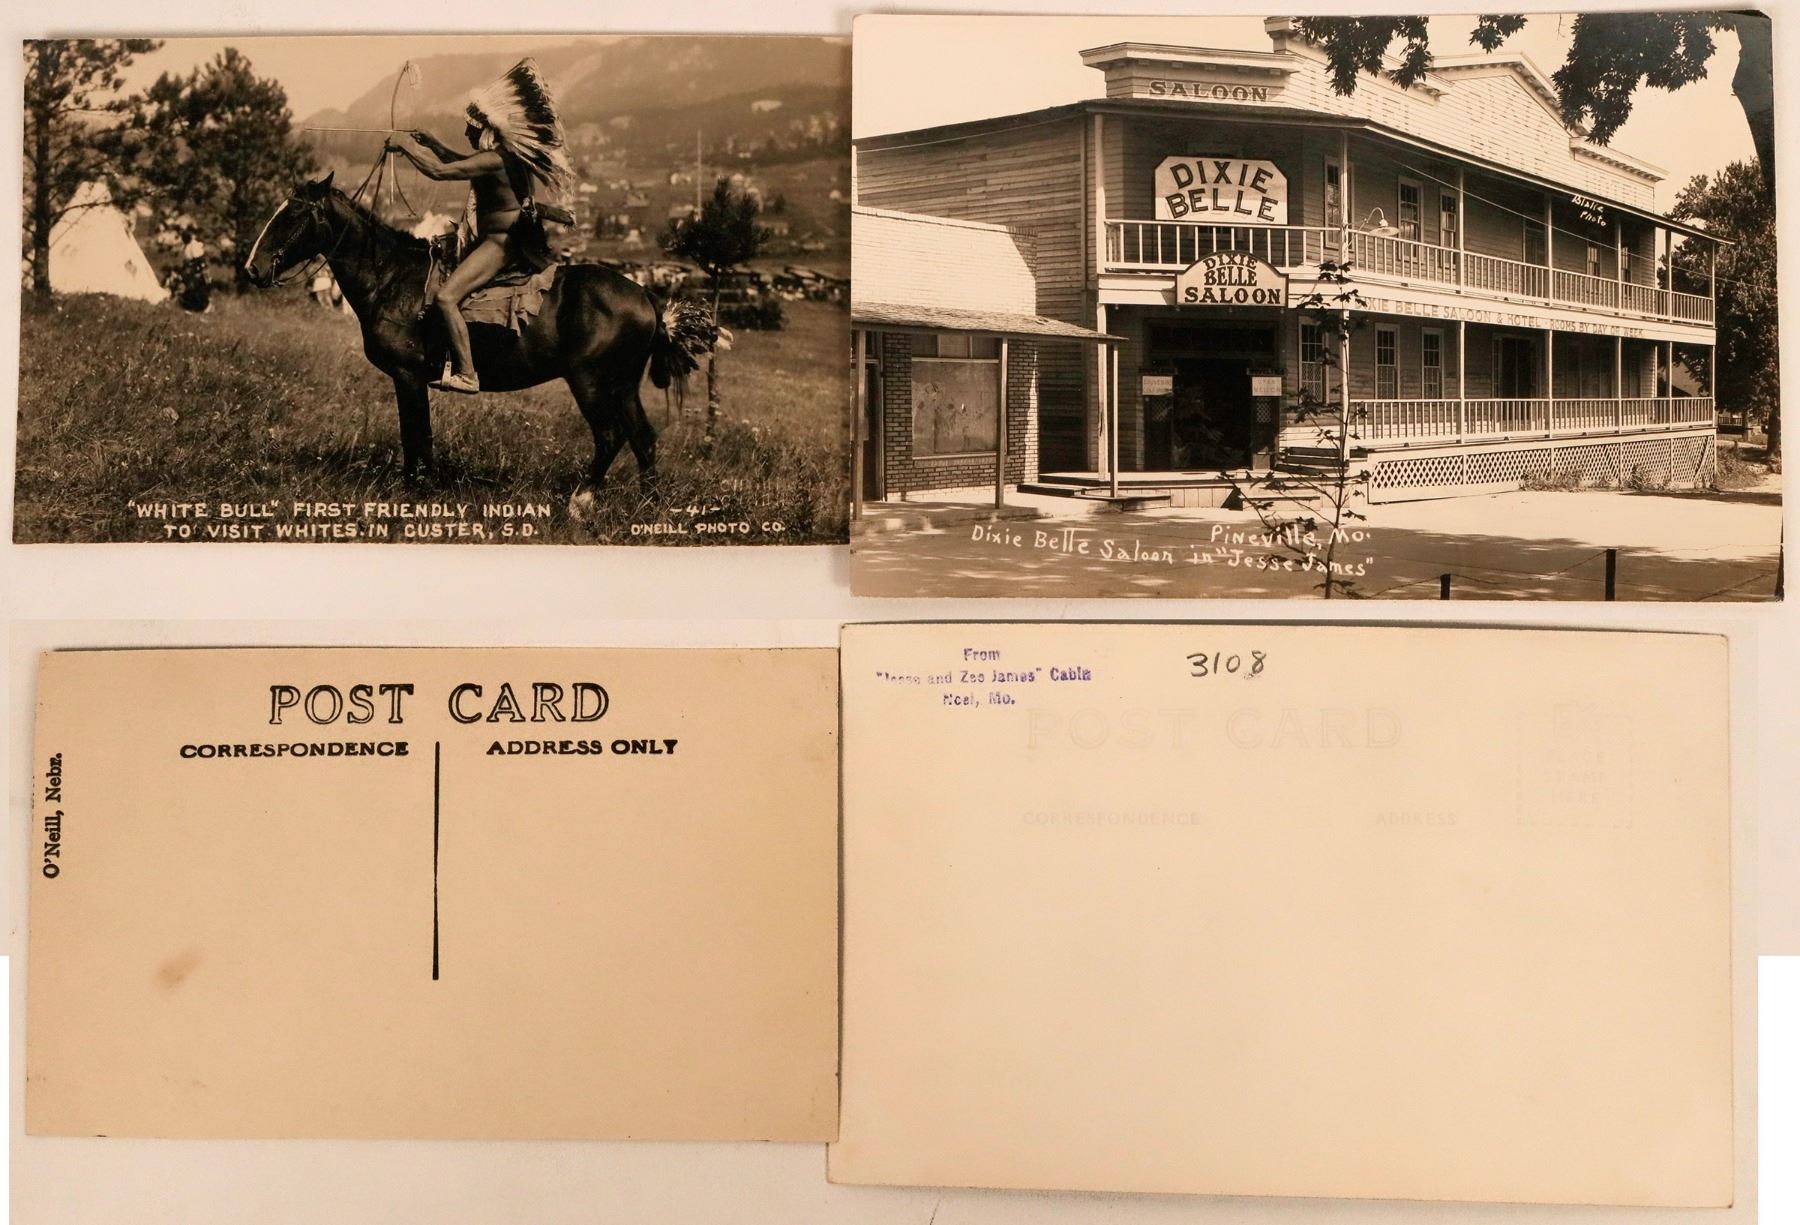 "WHITE BULL" FIRST FRIENDLY INDIAN
TO VISIT WHITES. IN CUSTER, S.D.
-41-
O'NEILL PHOTO CO.
SALOON
DIXIE
BELLE
Blake
Photo
DIXIE
BELLE
SALOON
DIXIE BELLE SALOON & HOTEL ROOMS BY DAY OR WEEK
Pineville, Mo.
Dixie Belle Saloon in "Jesse James"
POST CARD
CORRESPONDENCE
ADDRESS ONLY
O'Neill, Nebr.
From
"Jesse and Zee James" Cabin
Noel, Mo.
3108
POST CARD
CORRESPONDENCE
ADDRESS
PLACE
STAMP
HERE